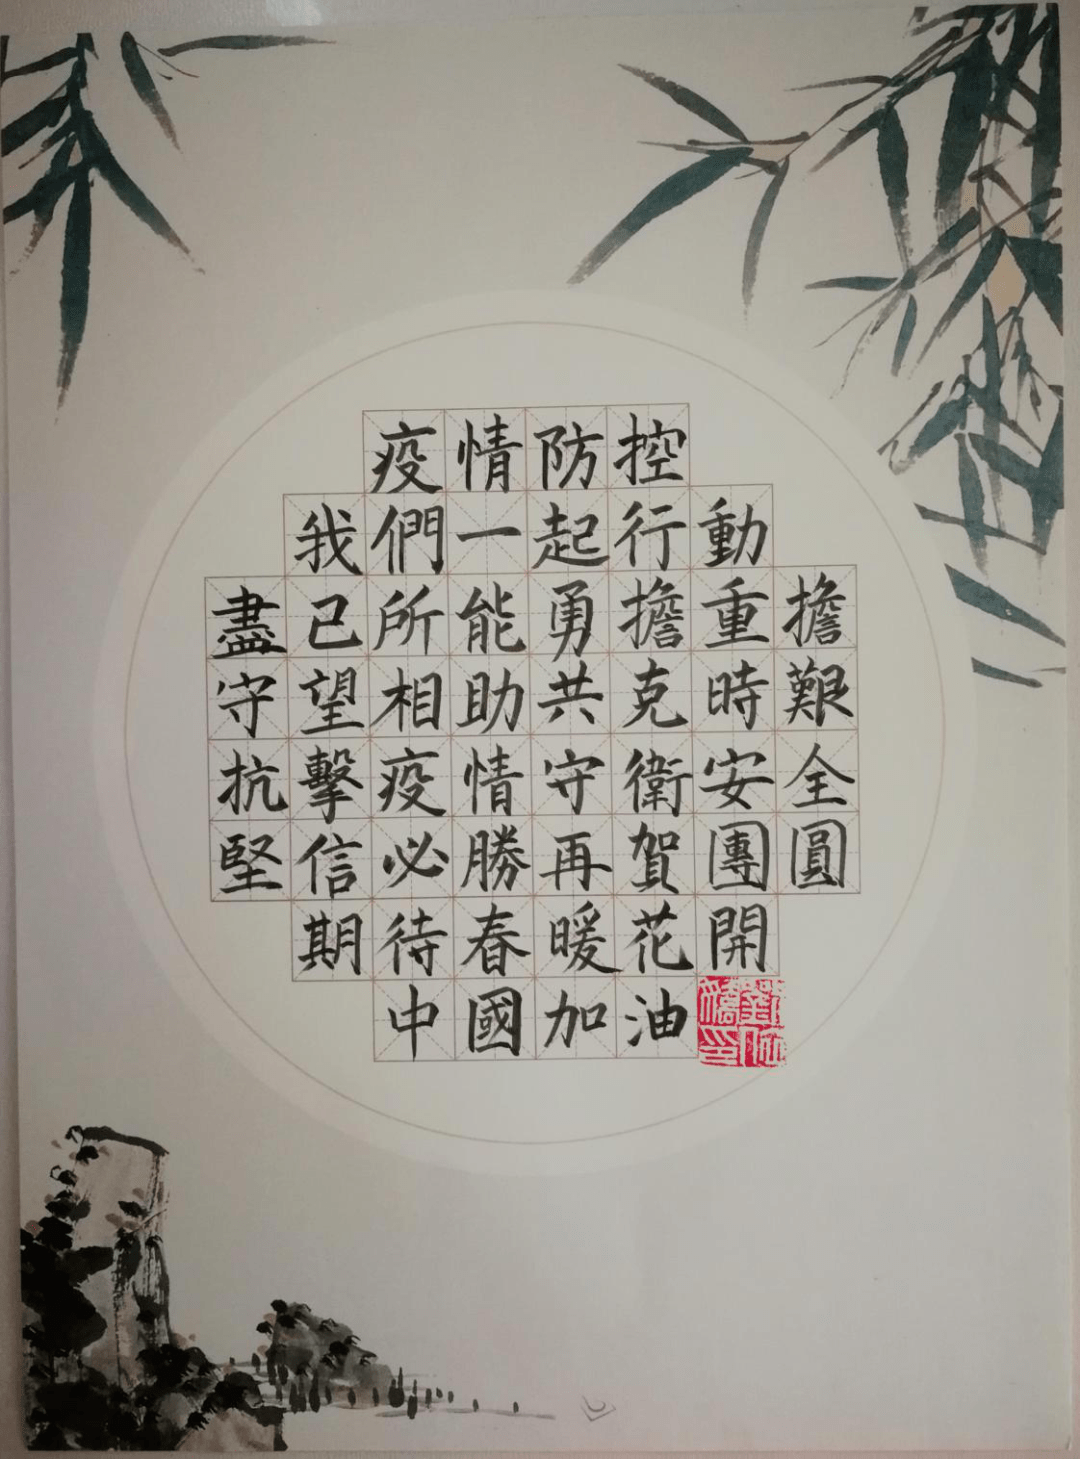 疫情防控
我們一起行動
盡己所能勇擔重擔
守望相助共克時艱
抗擊疫情守衛安全
堅信必勝再賀團圓
期待春暖花開
中國加油